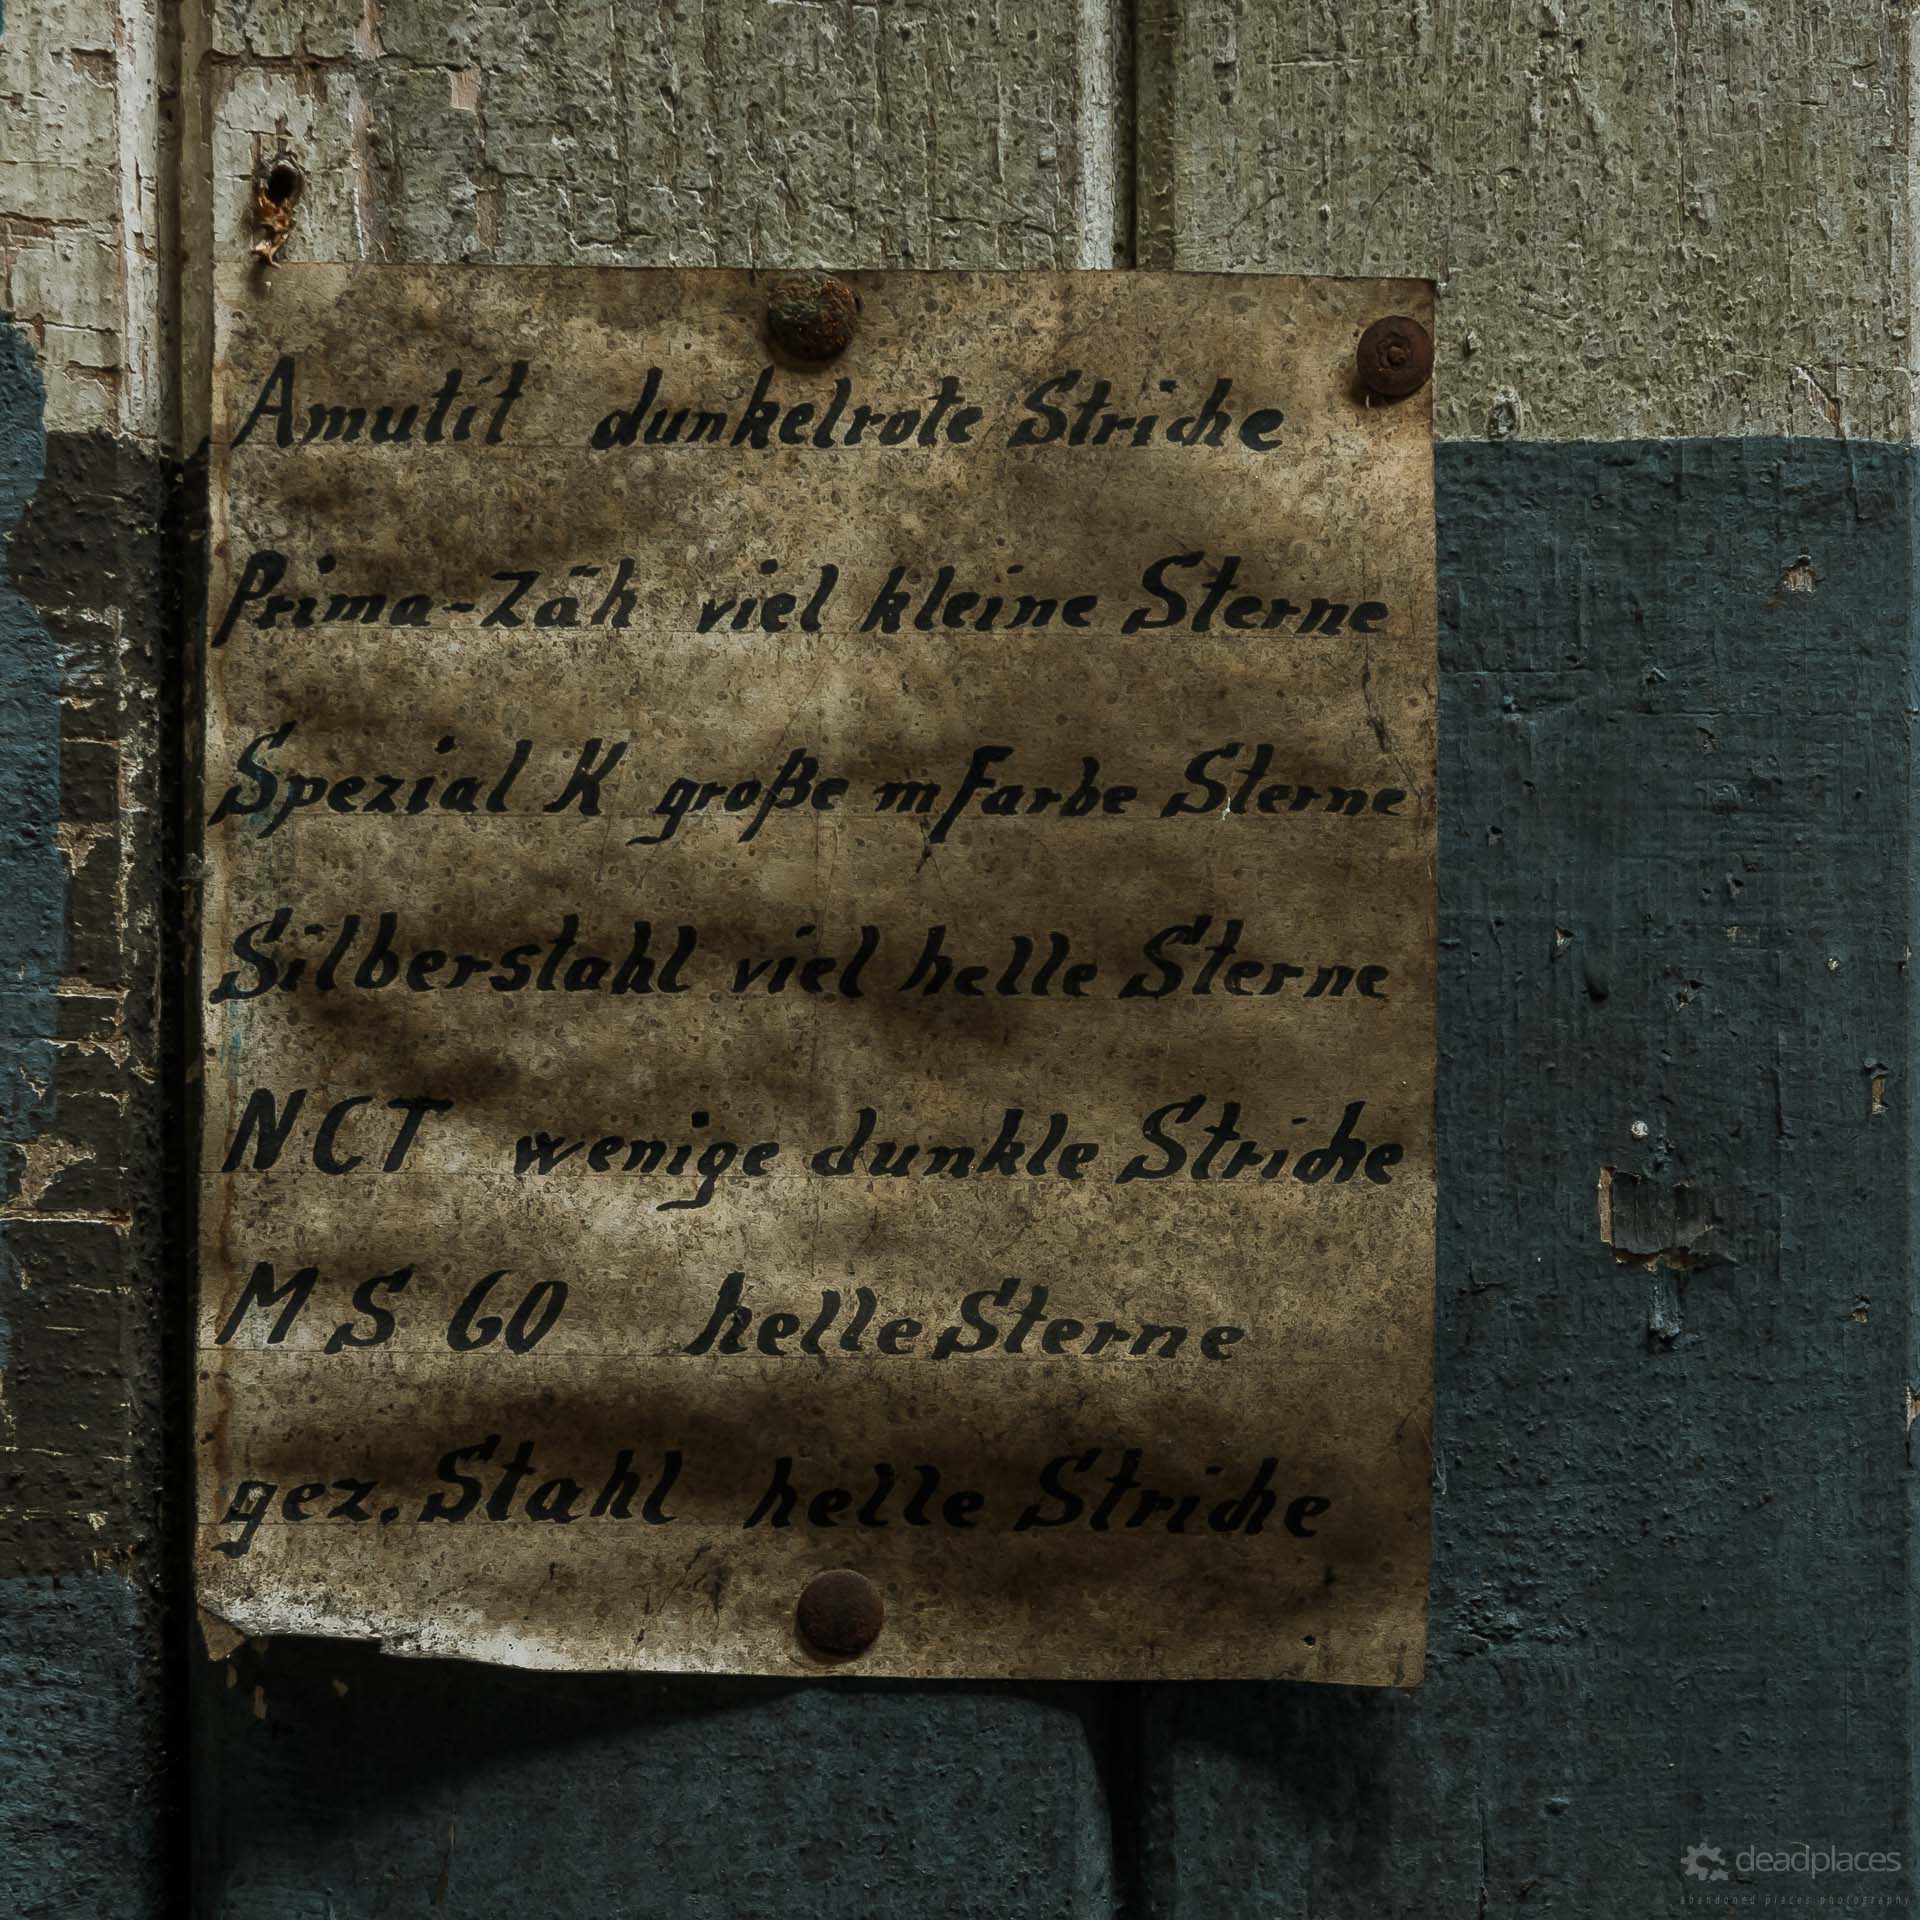 Amutit dunkelrote Striche
Prima-Zäh viel kleine Sterne
Spezial K große m Farbe Sterne
Silberstahl viel helle Sterne
NCT wenige dunkle Striche
MS 60 helle Sterne
gez. Stahl helle Striche
deadplaces
abandoned places photography